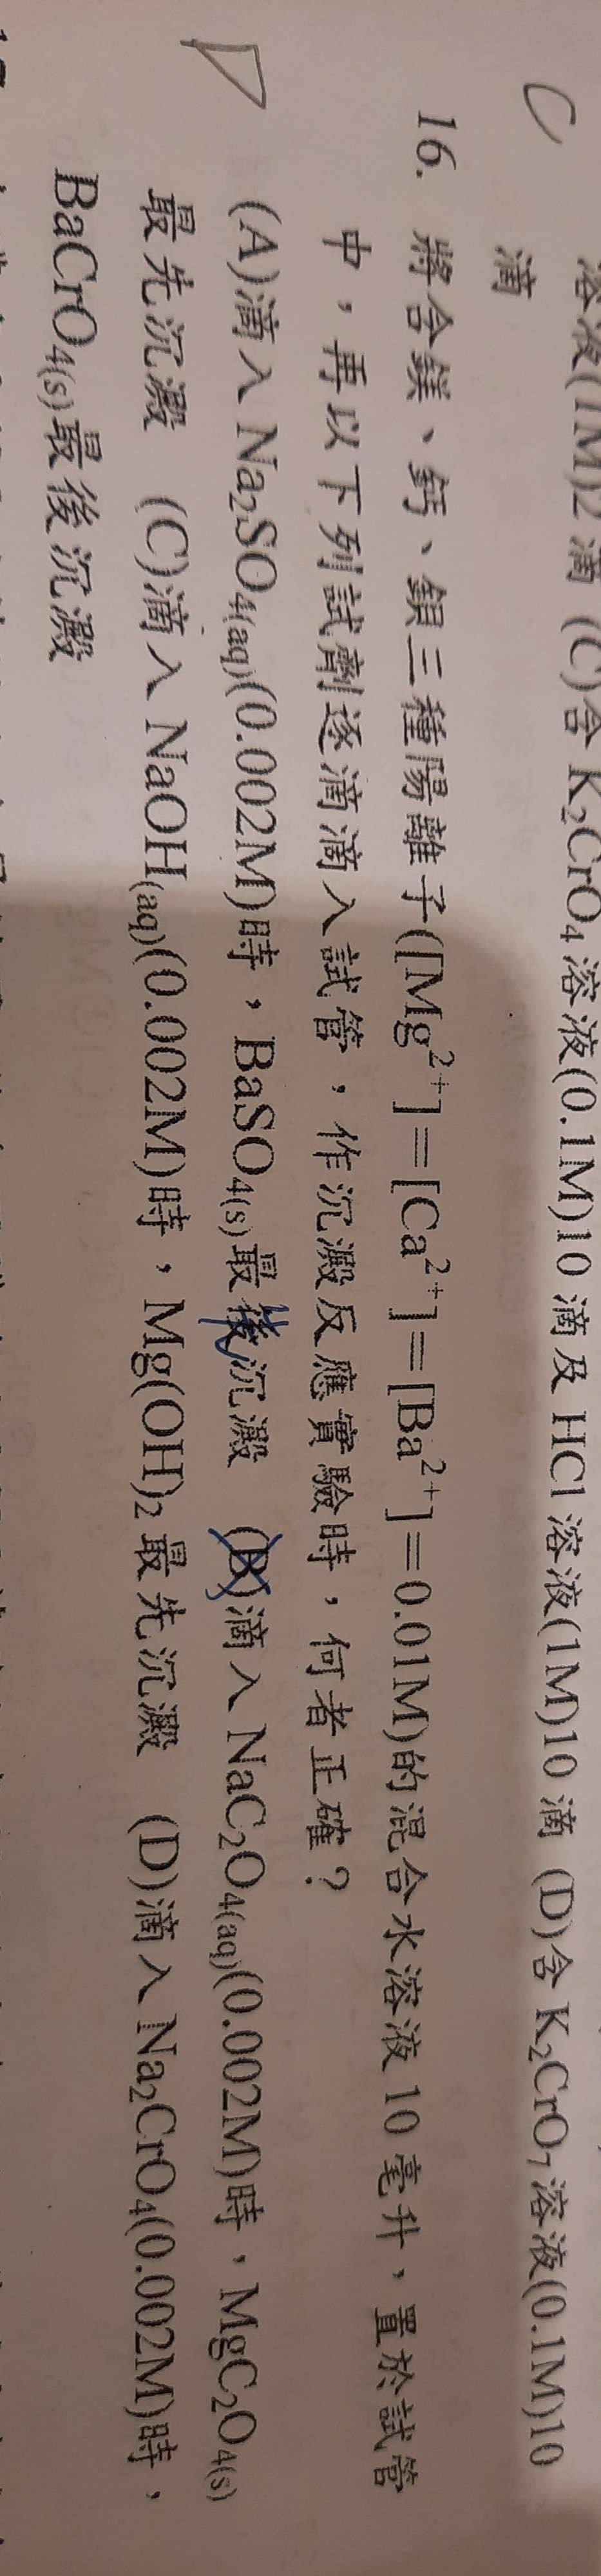 溶液(1M)2滴 (C)含K₂CrO₄溶液(0.1M)10滴及HCl溶液(1M)10滴 (D)含K₂CrO₇溶液(0.1M)10
滴
C
16. 將含鎂、鈣、鋇三種陽離子([Mg²⁺]=[Ca²⁺]=[Ba²⁺]=0.01M)的混合水溶液10毫升,置於試管
中,再以下列試劑逐滴滴入試管,作沉澱反應實驗時,何者正確?
(A)滴入Na₂SO₄(aq)(0.002M)時,BaSO₄(s)最後沉澱 (B)滴入NaC₂O₄(aq)(0.002M)時,MgC₂O₄(s)
D
最先沉澱 (C)滴入NaOH(aq)(0.002M)時,Mg(OH)₂最先沉澱 (D)滴入Na₂CrO₄(0.002M)時,
BaCrO₄(s)最後沉澱